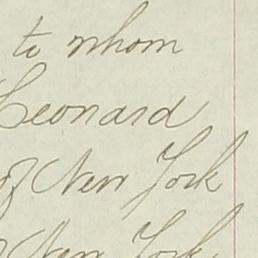 to whom
Leonard
of New York
New York